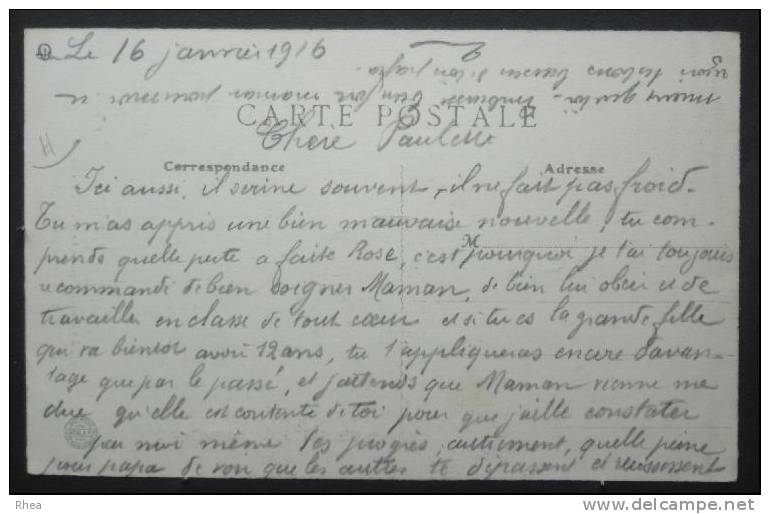 Le 16 janvier 1916
CARTE POSTALE
Chère Paulette
Correspondance
Adresse
Ici aussi, il serine souvent, il ne fait pas froid.
Tu m'as appris une bien mauvaise nouvelle, tu com-
M
prends quelle perte a faite Rose, c'est pourquoi je t'ai toujours
recommandé de bien soigner Maman, de bien lui obéir et de
travailler en classe de tout cœur et si tu es la grande fille
qui va bientôt avoir 12 ans, tu t'appliqueras encore davan-
tage que par le passé, et j'attends que Maman vienne me
dire qu'elle est contente de toi pour que j'aille constater
par moi même tes progrès, autrement, quelle peine
pour papa de voir que les autres te dépassent et réussissent
mieux que toi
Rhea
www.delcampe.net